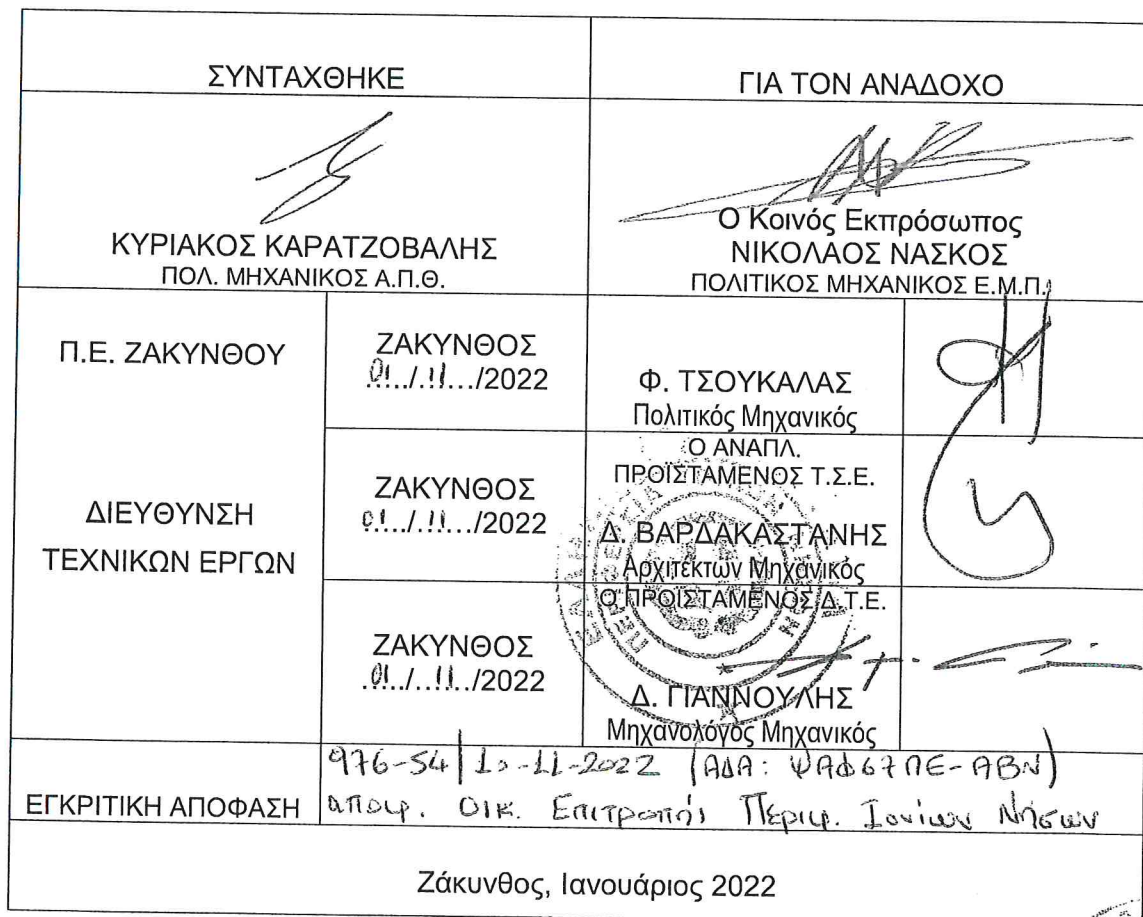 ΣΥΝΤΑΧΘΗΚΕ
ΓΙΑ ΤΟΝ ΑΝΑΔΟΧΟ
ΚΥΡΙΑΚΟΣ ΚΑΡΑΤΖΟΒΑΛΗΣ
ΠΟΛ. ΜΗΧΑΝΙΚΟΣ Α.Π.Θ.
Ο Κοινός Εκπρόσωπος
ΝΙΚΟΛΑΟΣ ΝΑΣΚΟΣ
ΠΟΛΙΤΙΚΟΣ ΜΗΧΑΝΙΚΟΣ Ε.Μ.Π.
Π.Ε. ΖΑΚΥΝΘΟΥ
ΔΙΕΥΘΥΝΣΗ
ΤΕΧΝΙΚΩΝ ΕΡΓΩΝ
ΖΑΚΥΝΘΟΣ
01../.11.../2022
Φ. ΤΣΟΥΚΑΛΑΣ
Πολιτικός Μηχανικός
ΖΑΚΥΝΘΟΣ
01.../.11.../2022
Ο ΑΝΑΠΛ.
ΠΡΟΪΣΤΑΜΕΝΟΣ Τ.Σ.Ε.
Δ. ΒΑΡΔΑΚΑΣΤΑΝΗΣ
Αρχιτέκτων Μηχανικός
ΖΑΚΥΝΘΟΣ
.01../..11../2022
Ο ΠΡΟΪΣΤΑΜΕΝΟΣ Δ.Τ.Ε.
Δ. ΓΙΑΝΝΟΥΛΗΣ
Μηχανολόγος Μηχανικός
ΕΓΚΡΙΤΙΚΗ ΑΠΟΦΑΣΗ
976-54/10-11-2022 (ΑΔΑ: ΨΑΦ67ΛΕ-ΑΒΝ)
αποφ. Οικ. Επιτροπής Περιφ. Ιονίων Νήσων
Ζάκυνθος, Ιανουάριος 2022